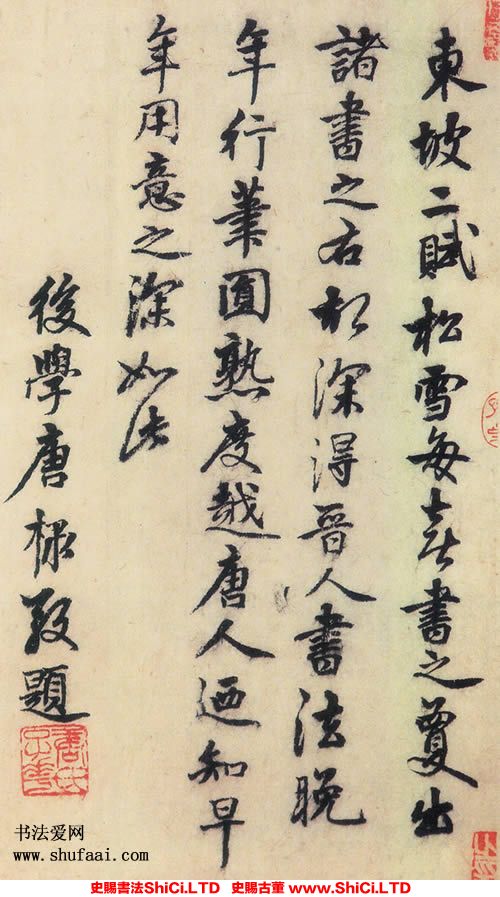 東坡二賦松雪每喜書之敻出
諸書之右却深得晉人書法晚
年行筆圓熟度越唐人迺知早
年用意之深如此
後學唐棣敬題
书法爱网
www.shufaai.com
史賜書法ShiCi.LTD 史賜古董 www.ShiCi.LTD